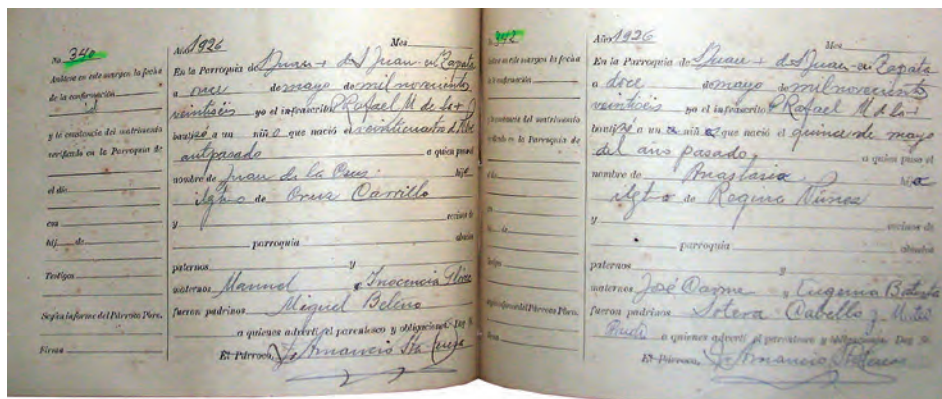 No. 340
Anótese en este margen la fecha
de la confirmación
y la constancia del matrimonio
verificado en la Parroquia de
el día
con
hij de
Testigos
Según informe del Párroco Pbro.
Firma
Año 1926 Mes
En la Parroquia de Juan en Zapata
a once de mayo de mil novecientos
veintiseis yo el infrascrito P Rafael M de la +
bauticé a un niño que nació el veinticuatro d
antpasado a quien puse
nombre de Juan de la Cruz hijo
ilgtmo de Cruz Carrillo
y vecinos de
parroquia abuelos
paternos y
maternos Manuel y Inocencia Flores
fueron padrinos Miguel Beleno
a quienes advertí el parentesco y obligaciones. Doy fé.
El Párroco, Fr Amancio Sta Teresa
No. 342
Anótese en este margen la fecha
de la confirmación
y la constancia del matrimonio
verificado en la Parroquia de
día
Según informe del Párroco Pbro.
Año 1926 Mes
En la Parroquia de Juan en Zapata
a doce de mayo de mil novecientos
veintiseis yo el infrascrito P Rafael M de la +
bauticé a una niña que nació el quince de mayo
del año pasado, a quien puse el
nombre de Anastasia hija
ilgtma de Regina Núnez
y vecinos de
parroquia abuelos
paternos y
maternos José Carme y Eugenia Batista
fueron padrinos Sotera Cabello y
a quienes advertí el parentesco y obligaciones. Doy fé.
El Párroco, Fr Amancio Sta Teresa